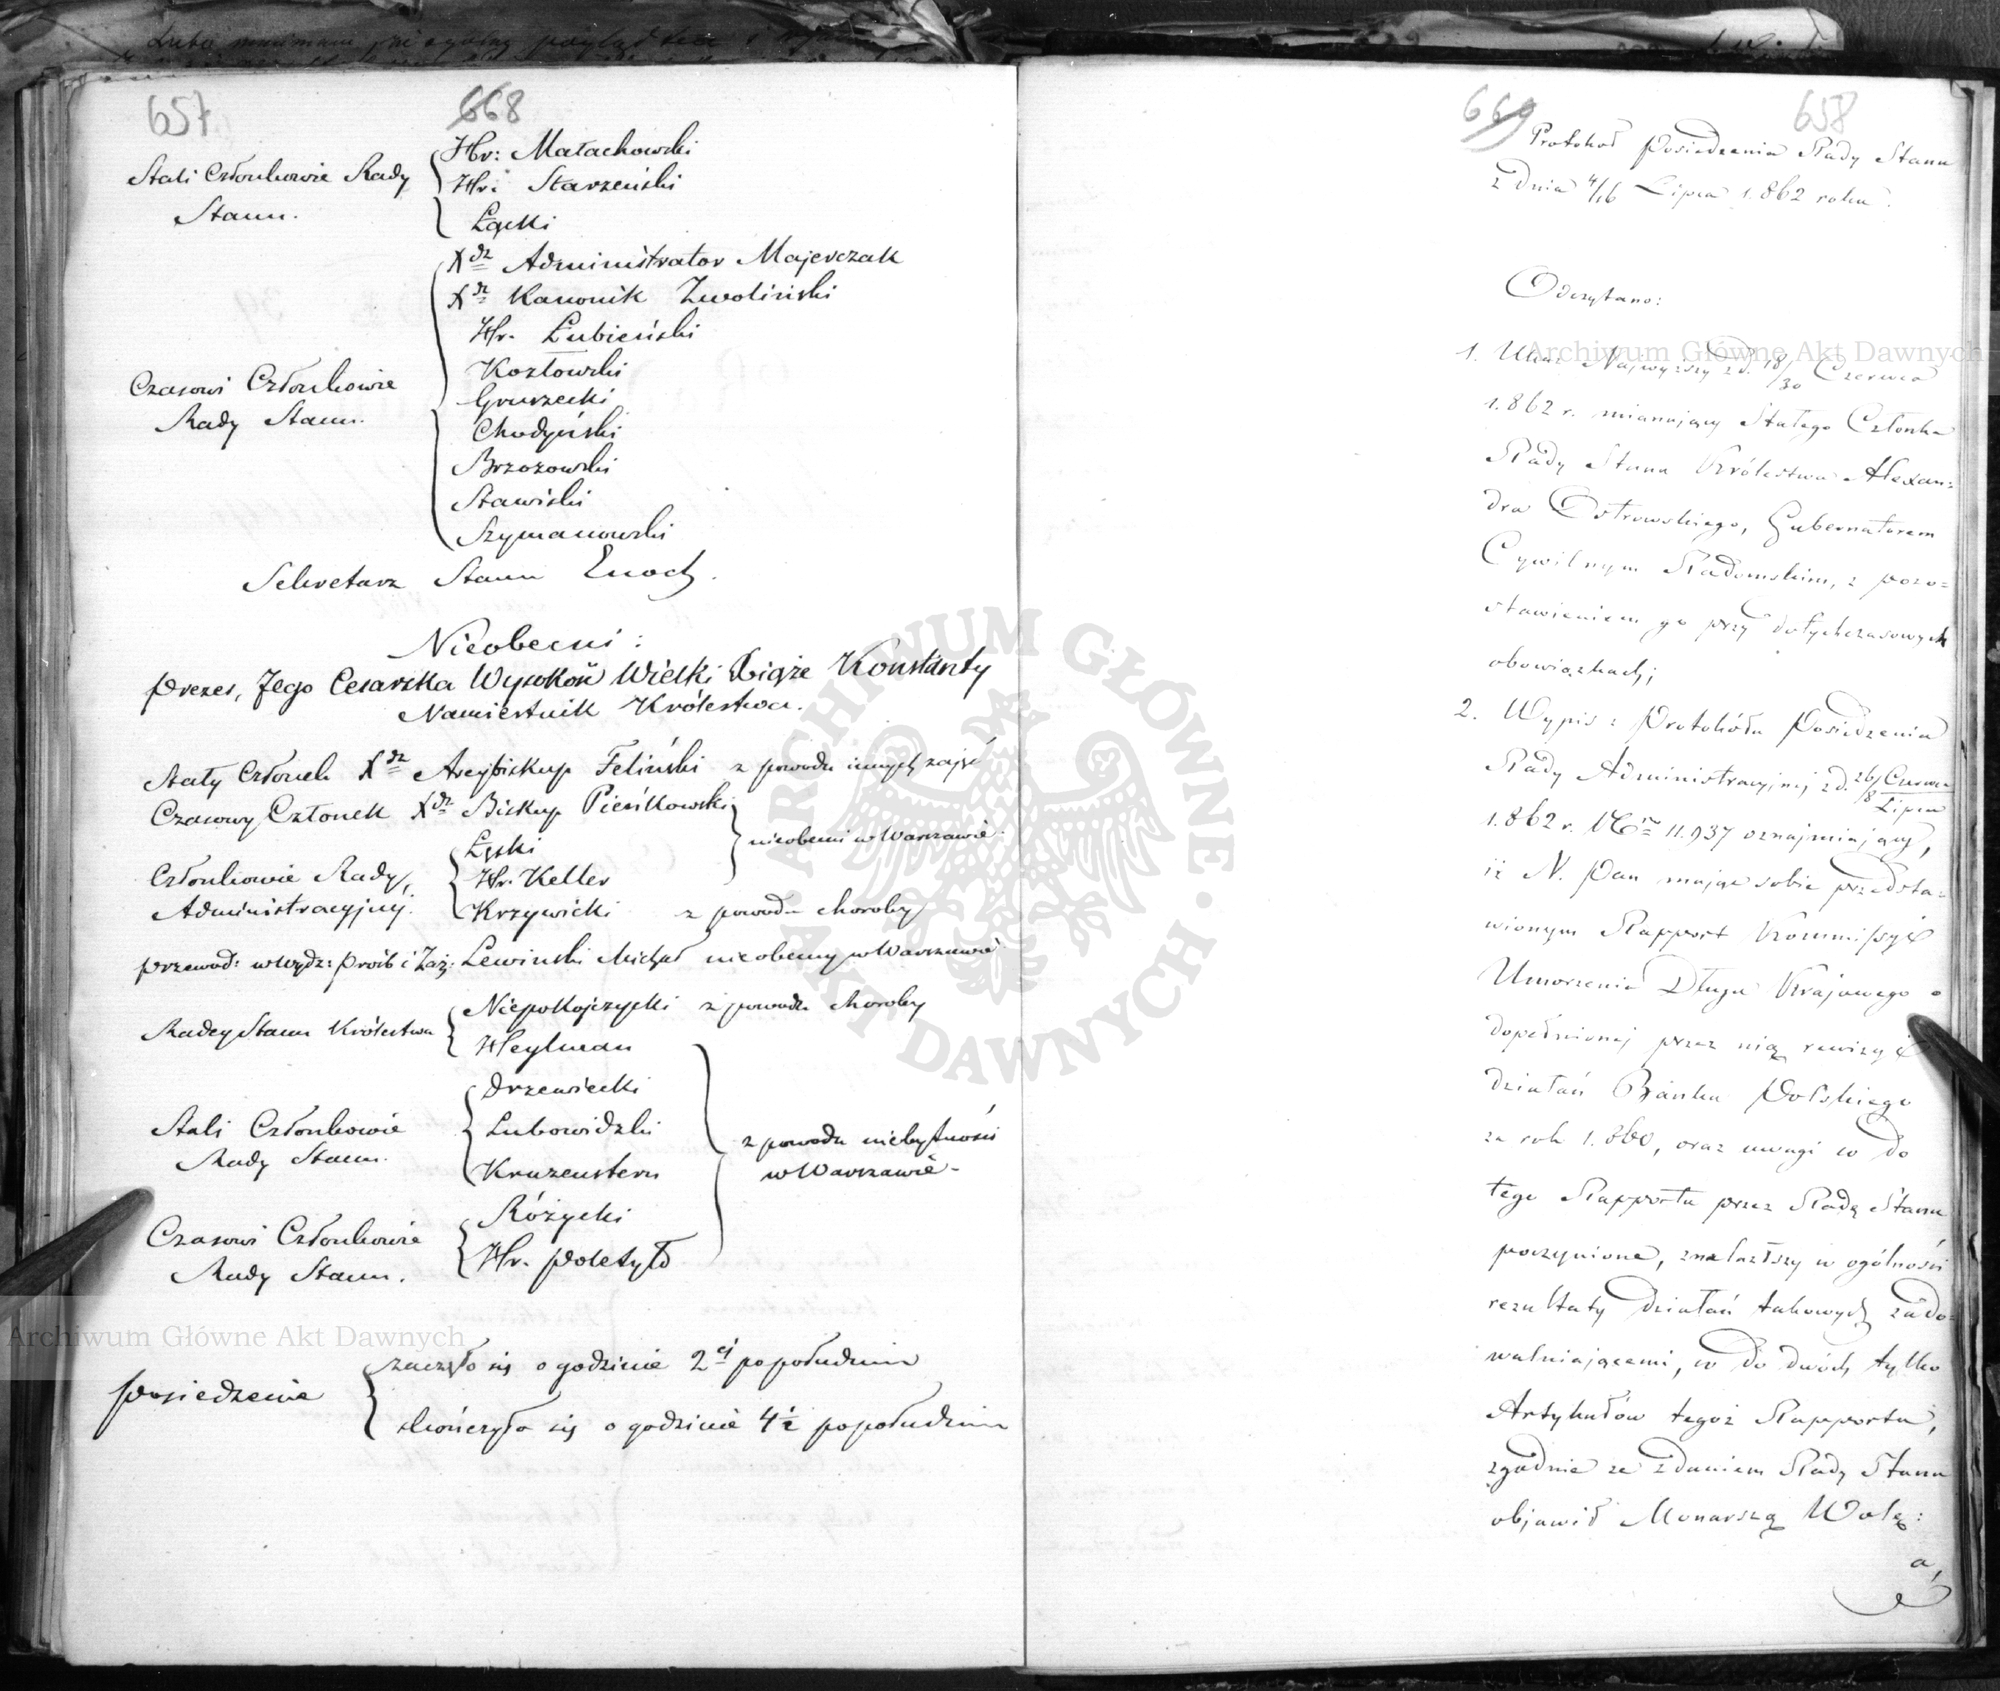 657
668
Stali Członkowie Rady
Stanu.
Hr: Małachowski
Hr: Starzeński
Łącki
Czasowi Członkowie
Rady Stanu.
Xdz Administrator Majerczak
Xdz Kanonik Zwoliński
Hr. Łubieński
Kozłowski
Gruszecki
Chodyński
Brzozowski
Stawiski
Szymanowski
Sekretarz Stanu Enoch.
Nieobecni:
Prezes, Jego Cesarska Wysokość Wielki Xiąże Konstanty
Namiestnik Królestwa.
Stały Członek Xdz Arcybiskup Feliński z powodu innych zajęć
Czasowy Członek Xdz Biskup Pieńkowski
Członkowie Rady
Administracyjnej.
Łęski
Hr. Keller
nieobecni w Warszawie
Krzywicki z powodu choroby
Przewod: w Wydz: Próśb i Zaż: Lewiński Michał nieobecny w Warszawie
Radcy Stanu Królestwa
Niepokojczycki z powodu choroby
Heylman
Stali Członkowie
Rady Stanu.
Drzewiecki
Lubowidzki
Kruzenstern
z powodu niebytności
w Warszawie
Czasowi Członkowie
Rady Stanu.
Różycki
Hr. Poletyło
Posiedzenie
zaczęło się o godzinie 2ej popołudniu
skończyło się o godzinie 4½ popołudniu
669
658
Protokoł Posiedzenia Rady Stanu
z dnia 4/16 Lipca 1.862 roku.
Odczytano:
1. Ukaz Najwyższy z d. 18/30 Czerwca
1.862 r. mianujący Stałego Członka
Rady Stanu Królestwa Alexan=
dra Ostrowskiego, Gubernatorem
Cywilnym Radomskim, z pozo=
stawieniem go przy dotychczasowych
obowiązkach;
2. Wypis z Protokółu Posiedzenia
Rady Administracyjnej z d. 26 Czerwca/8 Lipca
1.862 r. Nr 11.937 oznajmiający,
iż N. Pan mając sobie przedsta=
wionym Rapport Kommissyi
Umorzenia Długu Krajowego o
dopełnionej przez nią rewizyi
działań Banku Polskiego
za rok 1.860, oraz uwagi co do
tego Rapportu przez Radę Stanu
poczynione, znalazłszy w ogólności
rezultaty działań takowych zado=
walniającemi, co do dwóch tylko
Artykułów tegoż Rapportu,
zgodnie ze zdaniem Rady Stanu
objawił Monarszą Wolę:
a,
Archiwum Główne Akt Dawnych
Archiwum Główne Akt Dawnych
ARCHIWUM GŁÓWNE · AKT DAWNYCH ·